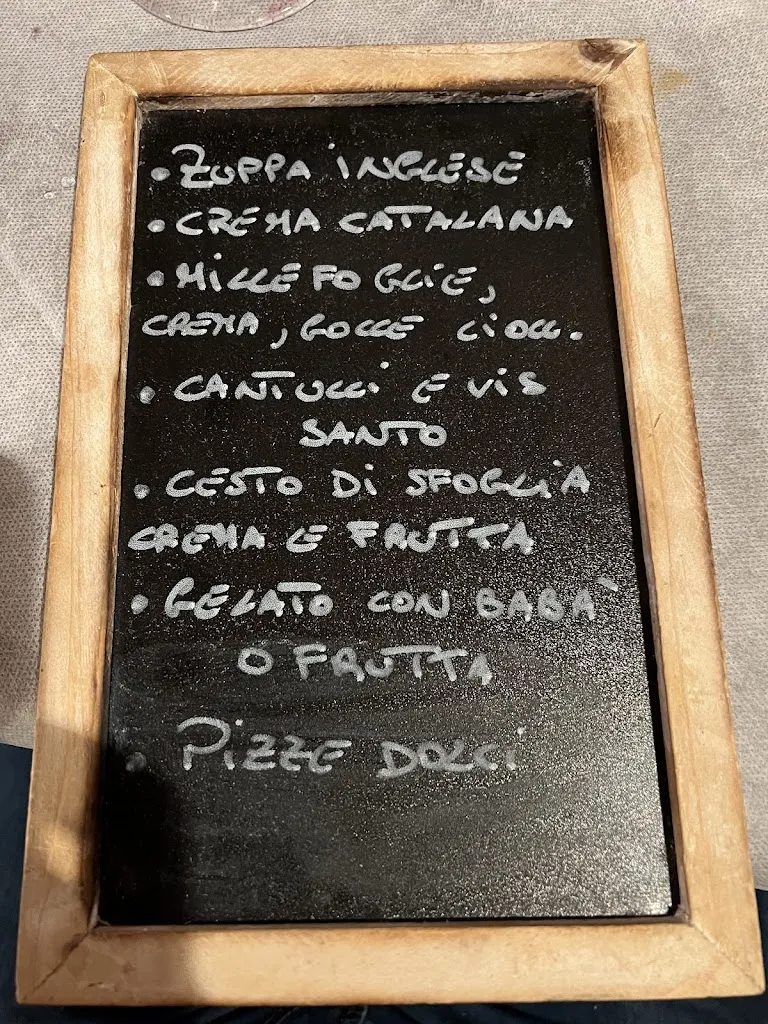 • ZUPPA INGLESE
• CREMA CATALANA
• MILLEFOGLIE,
CREMA, GOCCE CIOCC.
• CANTUCCI E VIS
SANTO
• CESTO DI SFOGLIA
CREMA E FRUTTA
• GELATO CON BABA`
O FRUTTA
• PIZZE DOLCI